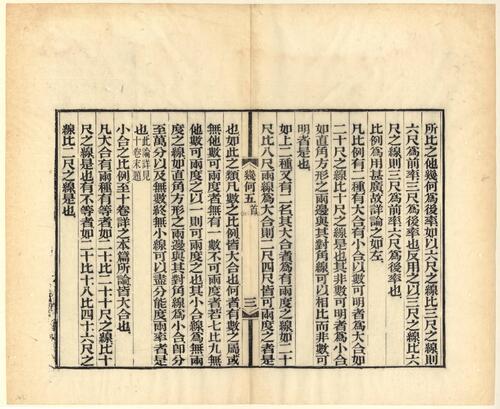 所比之他幾何爲後率如以六尺之線比三尺之線則
六尺爲前率三尺爲後率也反用之以三尺之線比六
尺之線則三尺爲前率六尺爲後率也
比例爲用甚廣故詳論之如左
凡比例有二種有大合有小合以數可明者爲大合如
二十尺之線比十尺之線是也其非數可明者爲小合
如直角方形之兩邊與其對角線可以相比而非數可
明者是也
如上二種又有二名其大合者爲有兩度之線如二十
尺比八尺兩線爲大合則二尺四尺皆可兩度之者是
幾何五首
三
也如此之類凡數之比例皆大合也何者有數之屬或
無他數可兩度者無有一數不可兩度者若七比九無
他數可兩度之以一則可兩度之也其小合線爲無兩
度之線如直角方形之兩邊與其對角線爲小合卽分
至萬分以及無數終無小線可以盡分能度兩率者是
也此論詳見十卷末題
小合之比例至十卷詳之本篇所論皆大合也
凡大合有兩種有等者如二十比二十十尺之線比十
尺之線是也有不等者如二十比十八比四十六尺之
線比二尺之線是也